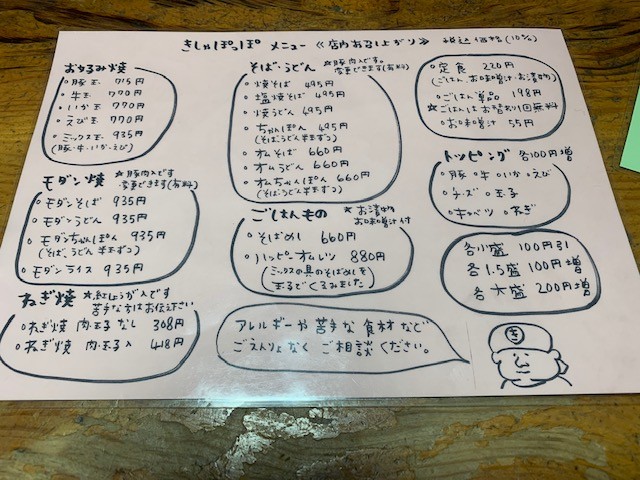 きしゃぽっぽ メニュー 《店内お召し上がり》 税込価格(10%)
お好み焼
○豚玉 715円
○牛玉 770円
○いか玉 770円
○えび玉 770円
○ミックス玉 935円
(豚・牛・いか・えび)
モダン焼 ☆豚肉入です
変更できます(有料)
○モダンそば 935円
○モダンうどん 935円
○モダンちゃんぽん 935円
(そば、うどん半玉ずつ)
○モダンライス 935円
ねぎ焼 ☆紅しょうが入です
苦手な方はお伝え下さい
○ねぎ焼 肉・玉子なし 308円
○ねぎ焼 肉・玉子入 418円
そば・うどん ☆豚肉入です。
変更できます(有料)
○焼そば 495円
○塩焼そば 495円
○焼うどん 495円
○ちゃんぽん 495円
(そば・うどん半玉ずつ)
○オムそば 660円
○オムうどん 660円
○オムちゃんぽん 660円
(そば・うどん半玉ずつ)
ごはんもの ☆お漬物
お味噌汁付
○そばめし 660円
○ハッピーオムレツ 880円
(ミックスの具のそばめしを
玉子でくるみました)
アレルギーや苦手な食材など
ごえんりょなく ご相談ください。
○定食 220円
(ごはん、お味噌汁・お漬物)
○ごはん単品 198円
☆ごはんはお替り1回無料
○お味噌汁 55円
トッピング 各100円増
○豚 ○牛 ○いか ○えび
○チーズ ○玉子
○キャベツ ○ねぎ
各小盛 100円引
各1.5盛 100円増
各大盛 200円増
き